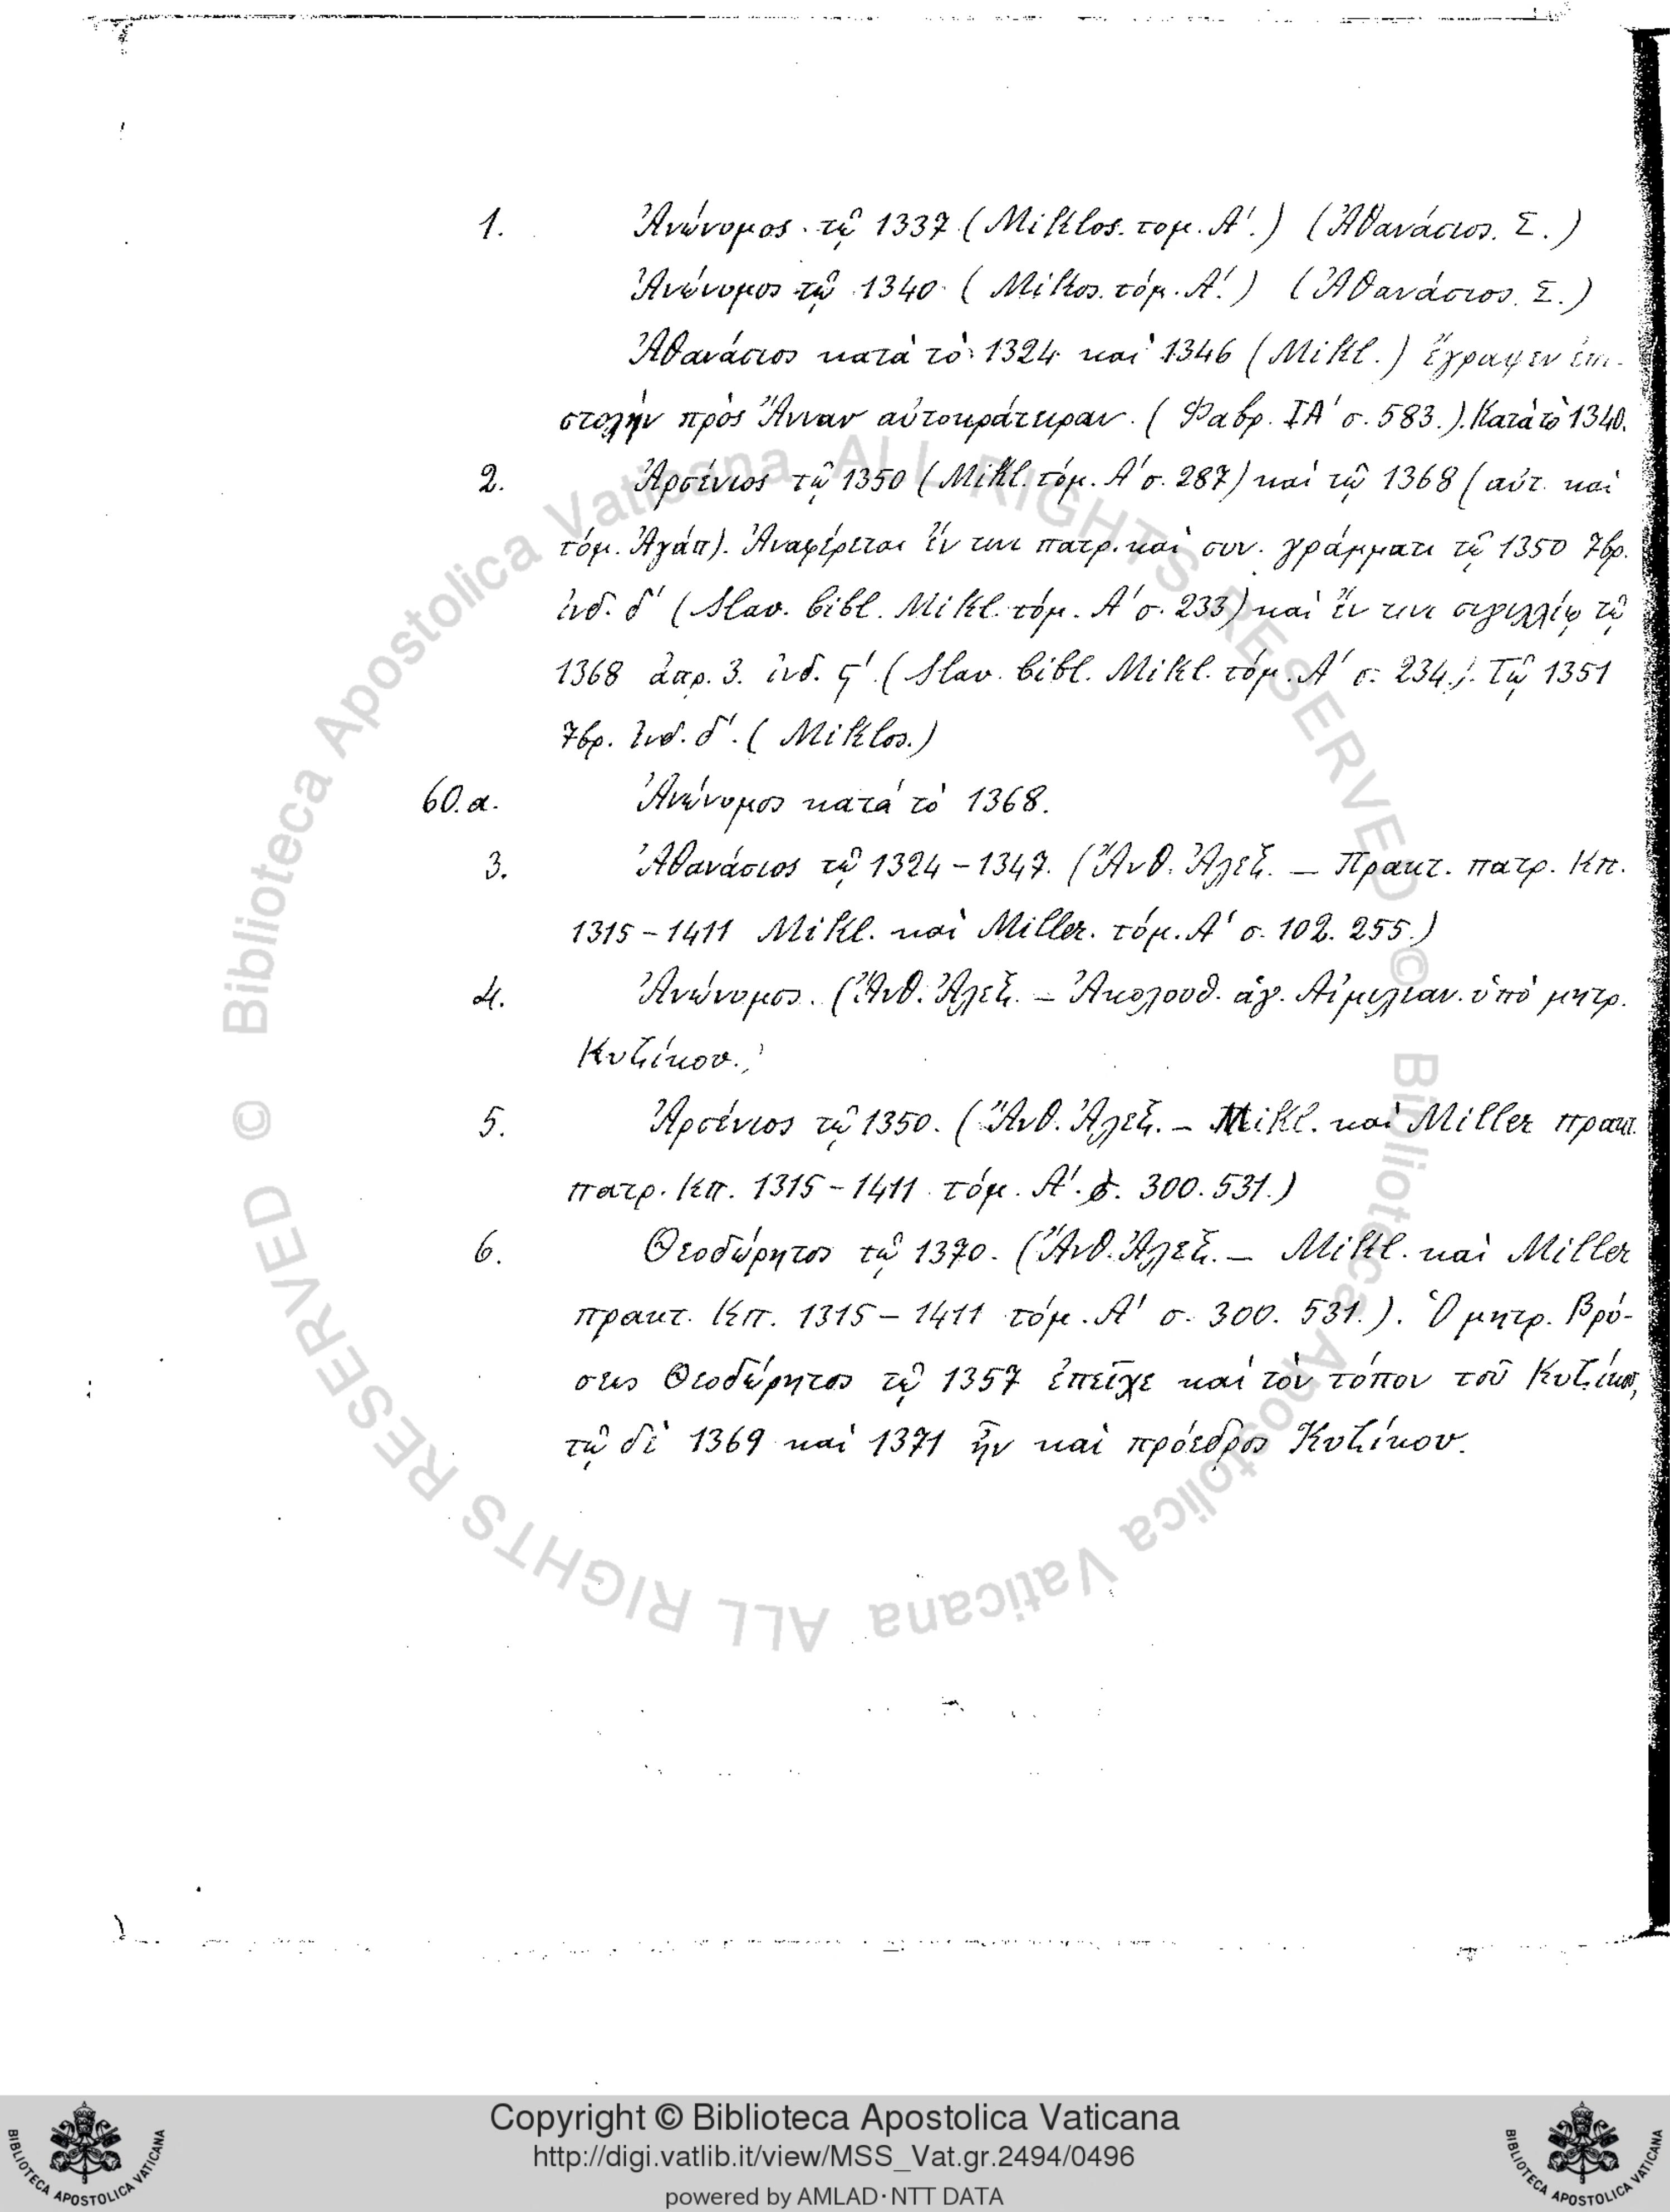 1. Ἀνώνυμος τῷ 1337 (Miklos. τομ. Α΄.) (Ἀθανάσιος. Σ.)
Ἀνώνυμος τῷ 1340 (Miklos. τόμ. Α΄.) (Ἀθανάσιος. Σ.)
Ἀθανάσιος κατὰ τὸ 1324 καὶ 1346 (Mikl.) ἔγραψεν ἐπι-
στολὴν πρὸς Ἄνναν αὐτοκράτειραν. (Φαβρ. ΙΑ΄ σ. 583.). Κατὰ τὸ 1340.
2. Ἀρσένιος τῷ 1350 (Mikl. τόμ. Α΄ σ. 287) καὶ τῷ 1368 (αὐτ. καὶ
τόμ. Ἀγάπ). Ἀναφέρεται ἔν τινι πατρ. καὶ συν. γράμματι τῷ 1350 7βρ.
ἰνδ. δ΄ (Slav. bibl. Mikl. τόμ. Α΄ σ. 233) καὶ ἔν τινι σιγιλλίῳ τῷ
1368 ἀπρ. 3. ἰνδ. ϛ΄ (Slav. bibl. Mikl. τόμ. Α΄ σ. 234.). Τῷ 1351
7βρ. Ἰνδ. δ΄. (Miklos.)
60.α. Ἀνώνυμος κατὰ τὸ 1368.
3. Ἀθανάσιος τῷ 1324-1347. (Ἄνθ. Ἀλεξ. — Πρακτ. πατρ. Κπ.
1315-1411 Mikl. καὶ Miller. τόμ. Α΄ σ. 102. 255.)
4. Ἀνώνυμος. (Ἄνθ. Ἀλεξ. — Ἀκολουθ. ἁγ. Αἰμιλιαν. ὑπὸ μητρ.
Κυζίκου.)
5. Ἀρσένιος τῷ 1350. (Ἄνθ. Ἀλεξ. — Mikl. καὶ Miller πρακτ.
πατρ. Κπ. 1315-1411 τόμ. Α΄. σ. 300. 531.)
6. Θεοδώρητος τῷ 1370. (Ἄνθ. Ἀλεξ. — Mikl. καὶ Miller
πρακτ. Κπ. 1315-1411 τόμ. Α΄ σ. 300. 531.). Ὁ μητρ. Βρύ-
σεως Θεοδώρητος τῷ 1357 ἐπεῖχε καὶ τὸν τόπον τοῦ Κυζίκου,
τῷ δὲ 1369 καὶ 1371 ἦν καὶ πρόεδρος Κυζίκου.
© Biblioteca Apostolica Vaticana ALL RIGHTS RESERVED
© Biblioteca Apostolica Vaticana ALL RIGHTS RESERVED
Copyright © Biblioteca Apostolica Vaticana
http://digi.vatlib.it/view/MSS_Vat.gr.2494/0496
powered by AMLAD·NTT DATA
BIBLIOTECA APOSTOLICA VATICANA
BIBLIOTECA APOSTOLICA VATICANA